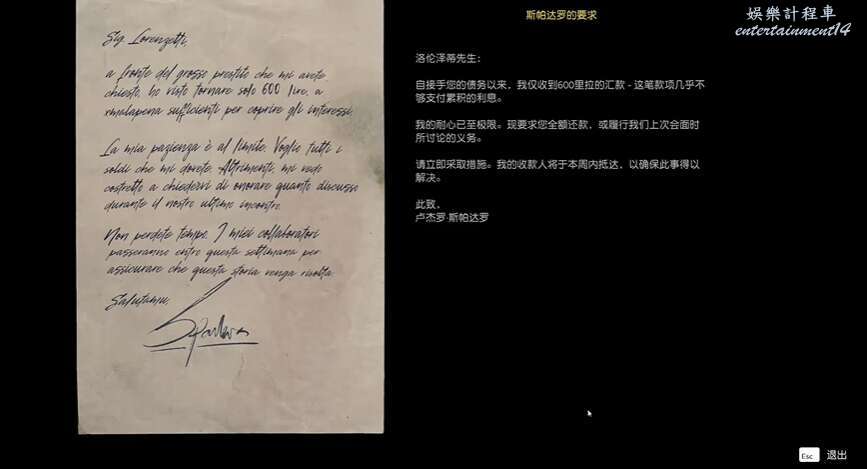 Sig. Lorenzetti,
a fronte del grosso prestito che mi avete
chiesto, ho visto tornare solo 600 lire, a
malapena sufficienti per coprire gli interessi.
La mia pazienza è al limite. Voglio tutti i
soldi che mi dovete. Altrimenti, mi vedo
costretto a chiedervi di onorare quanto discusso
durante il nostro ultimo incontro.
Non perdete tempo. I miei collaboratori
passeranno entro questa settimana per
assicurare che questa storia venga risolta.
Salutami,
斯帕达罗的要求
洛伦泽蒂先生：
自接手您的债务以来，我仅收到600里拉的汇款 - 这笔款项几乎不
够支付累积的利息。
我的耐心已至极限。现要求您全额还款，或履行我们上次会面时
所讨论的义务。
请立即采取措施。我的收款人将于本周内抵达，以确保此事得以
解决。
此致，
卢杰罗·斯帕达罗
娛樂計程車
entertainment14
Esc 退出